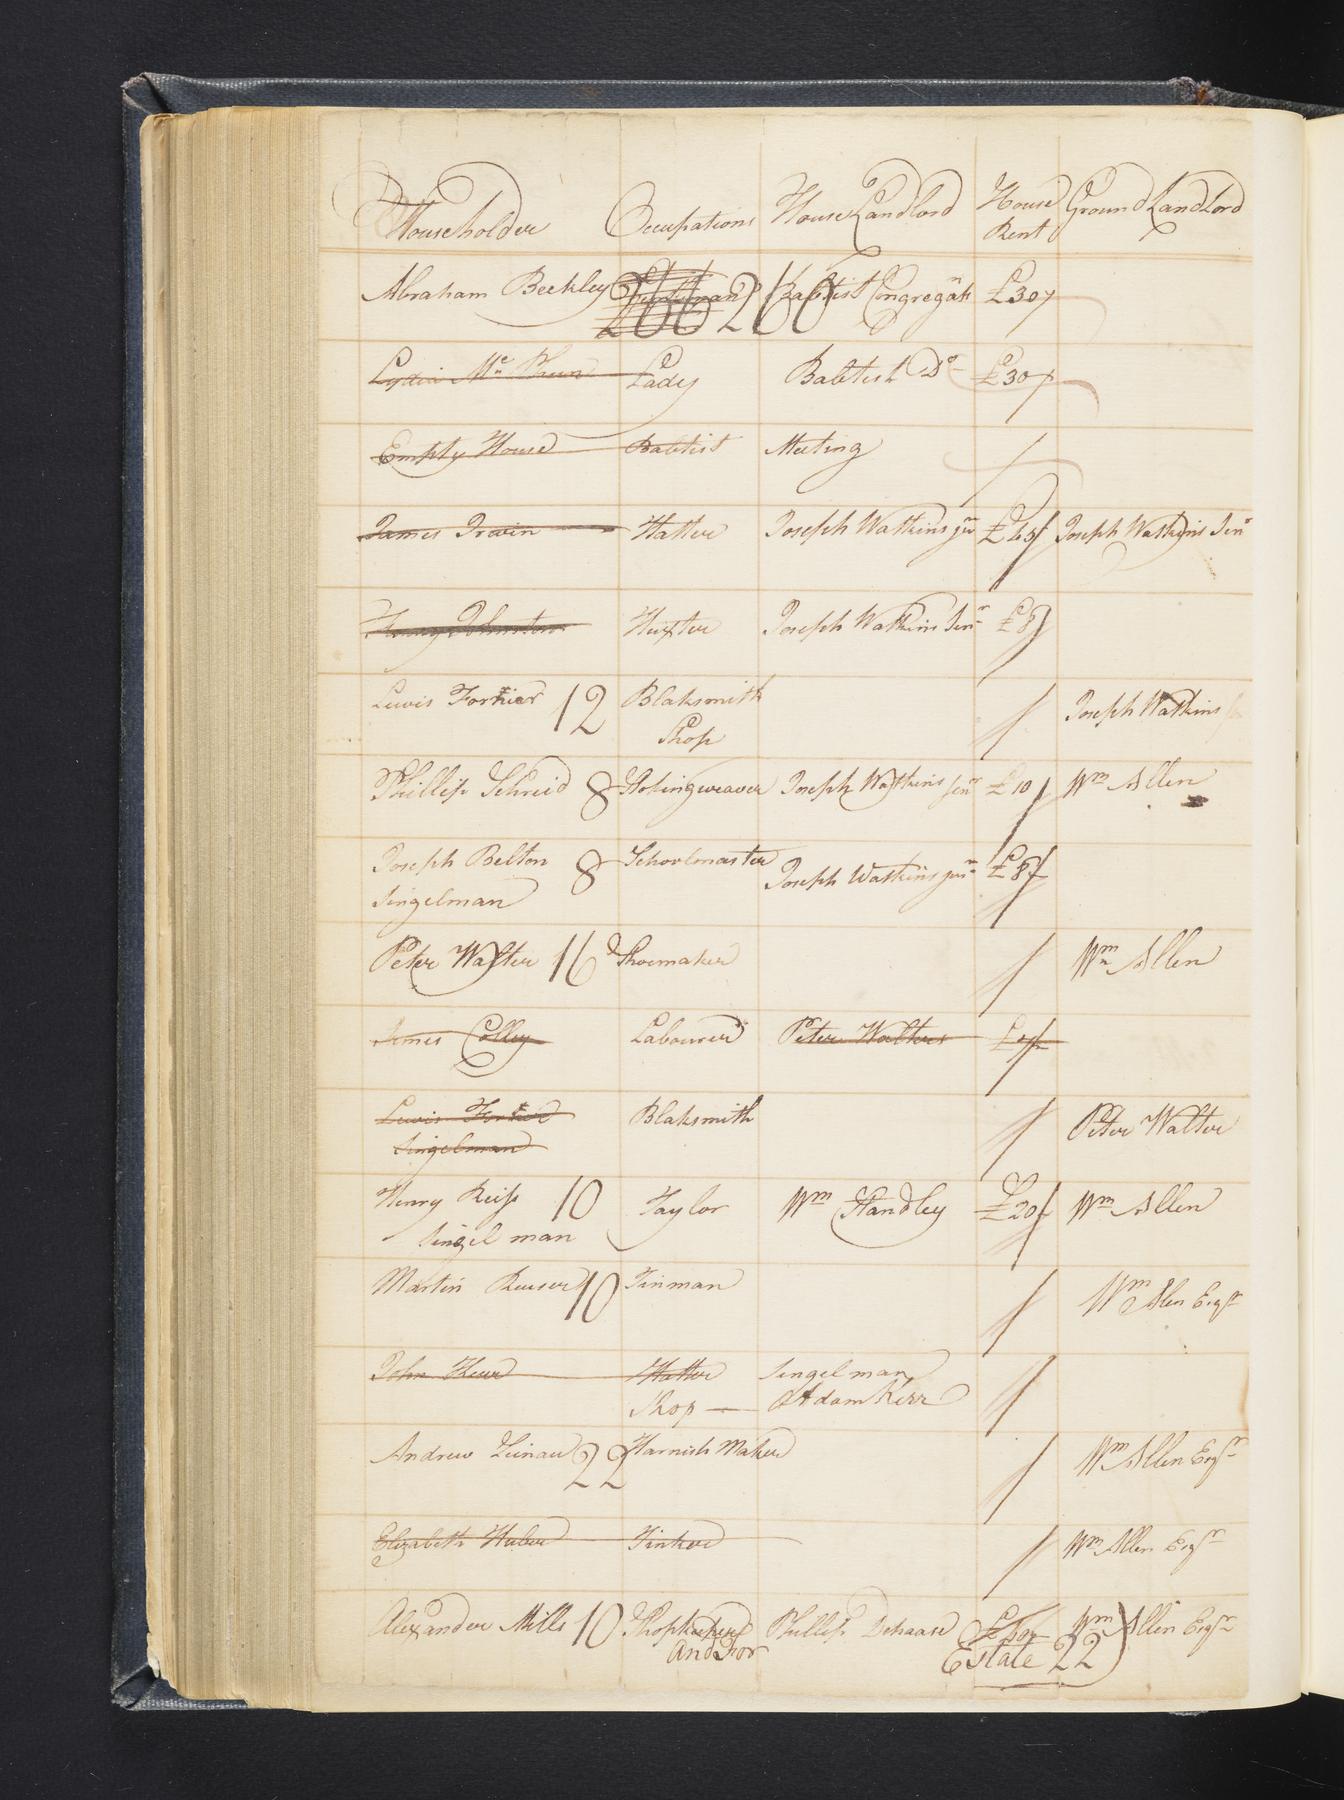 Householder Occupations House Landlord House Rent Ground Landlord
Abraham Beckley 26 260 Babtist Congregatn £30
Lydia Mc Lady Babtist Do £30
Empty House Babtist Meeting
James Irwin Hatter Joseph Watkins jur £45 Joseph Watkins Senr
Henry Johnston Huxter Joseph Watkins Senr £8
Lewis Forkier 12 Blaksmith Joseph Watkins
Shop
Phillip Schreid 8 Stokingweaver Joseph Watkins Senr £10 Wm Allen
Joseph Belton 8 Schoolmaster Joseph Watkins jur £8
Singelman
Peter Walter 16 Shoemaker Wm Allen
James Colley Labourer Peter Walters
Lewis Forkier Blaksmith Peter Walter
Singelman
Henry Reiss 10 Taylor Wm Handley £20 Wm Allen
Singel man
Martin Reuser 10 Tinman Wm Alen Esqr
John Keer Hatter Singelman
Shop — Adam Kerr
Andrew 22 Harnish Maker Wm Allen Esqr
Elizabeth Huber Tinker Wm Allen Esqr
Alexander Mills 10 Shopkeeper Phillip Dehaase Wm Allen Esqr
And For Estate 22)